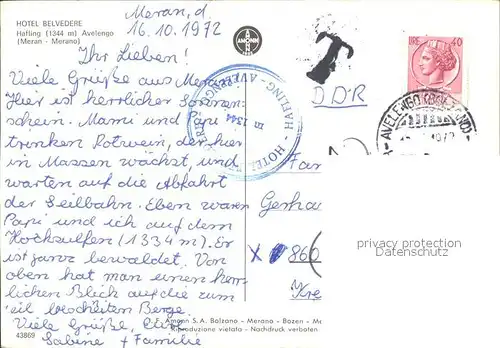 HOTEL BELVEDERE
Hafling (1344 m) Avelengo
(Meran - Merano)
Meran, d
16.10.1972
Ihr Lieben!
Viele Grüße aus Meran
Hier ist herrlicher Sonnen-
schein. Mami und Papi
trinken Rotwein, der hier
in Massen wächst, und
warten auf die Abfahrt
der Seilbahn. Eben waren
Papi und ich auf dem
(1334 m). Er
ist ganz bewaldet. Von
oben hat man einen herr-
lichen Blick auf die zum
Teil beschneiten Berge.
Viele Grüße, Eure
Sabine + Familie
43869
AMONN
HAFLING AVELENGO
m 1344
HOTEL
T
DDR
LIRE 40
AVELENGO (BOLZANO)
Fam
Gerha
X 860
Kre
privacy protection
Datenschutz
E. Amonn S.A. Bolzano - Merano - Bozen - M
Riproduzione vietata - Nachdruck verboten